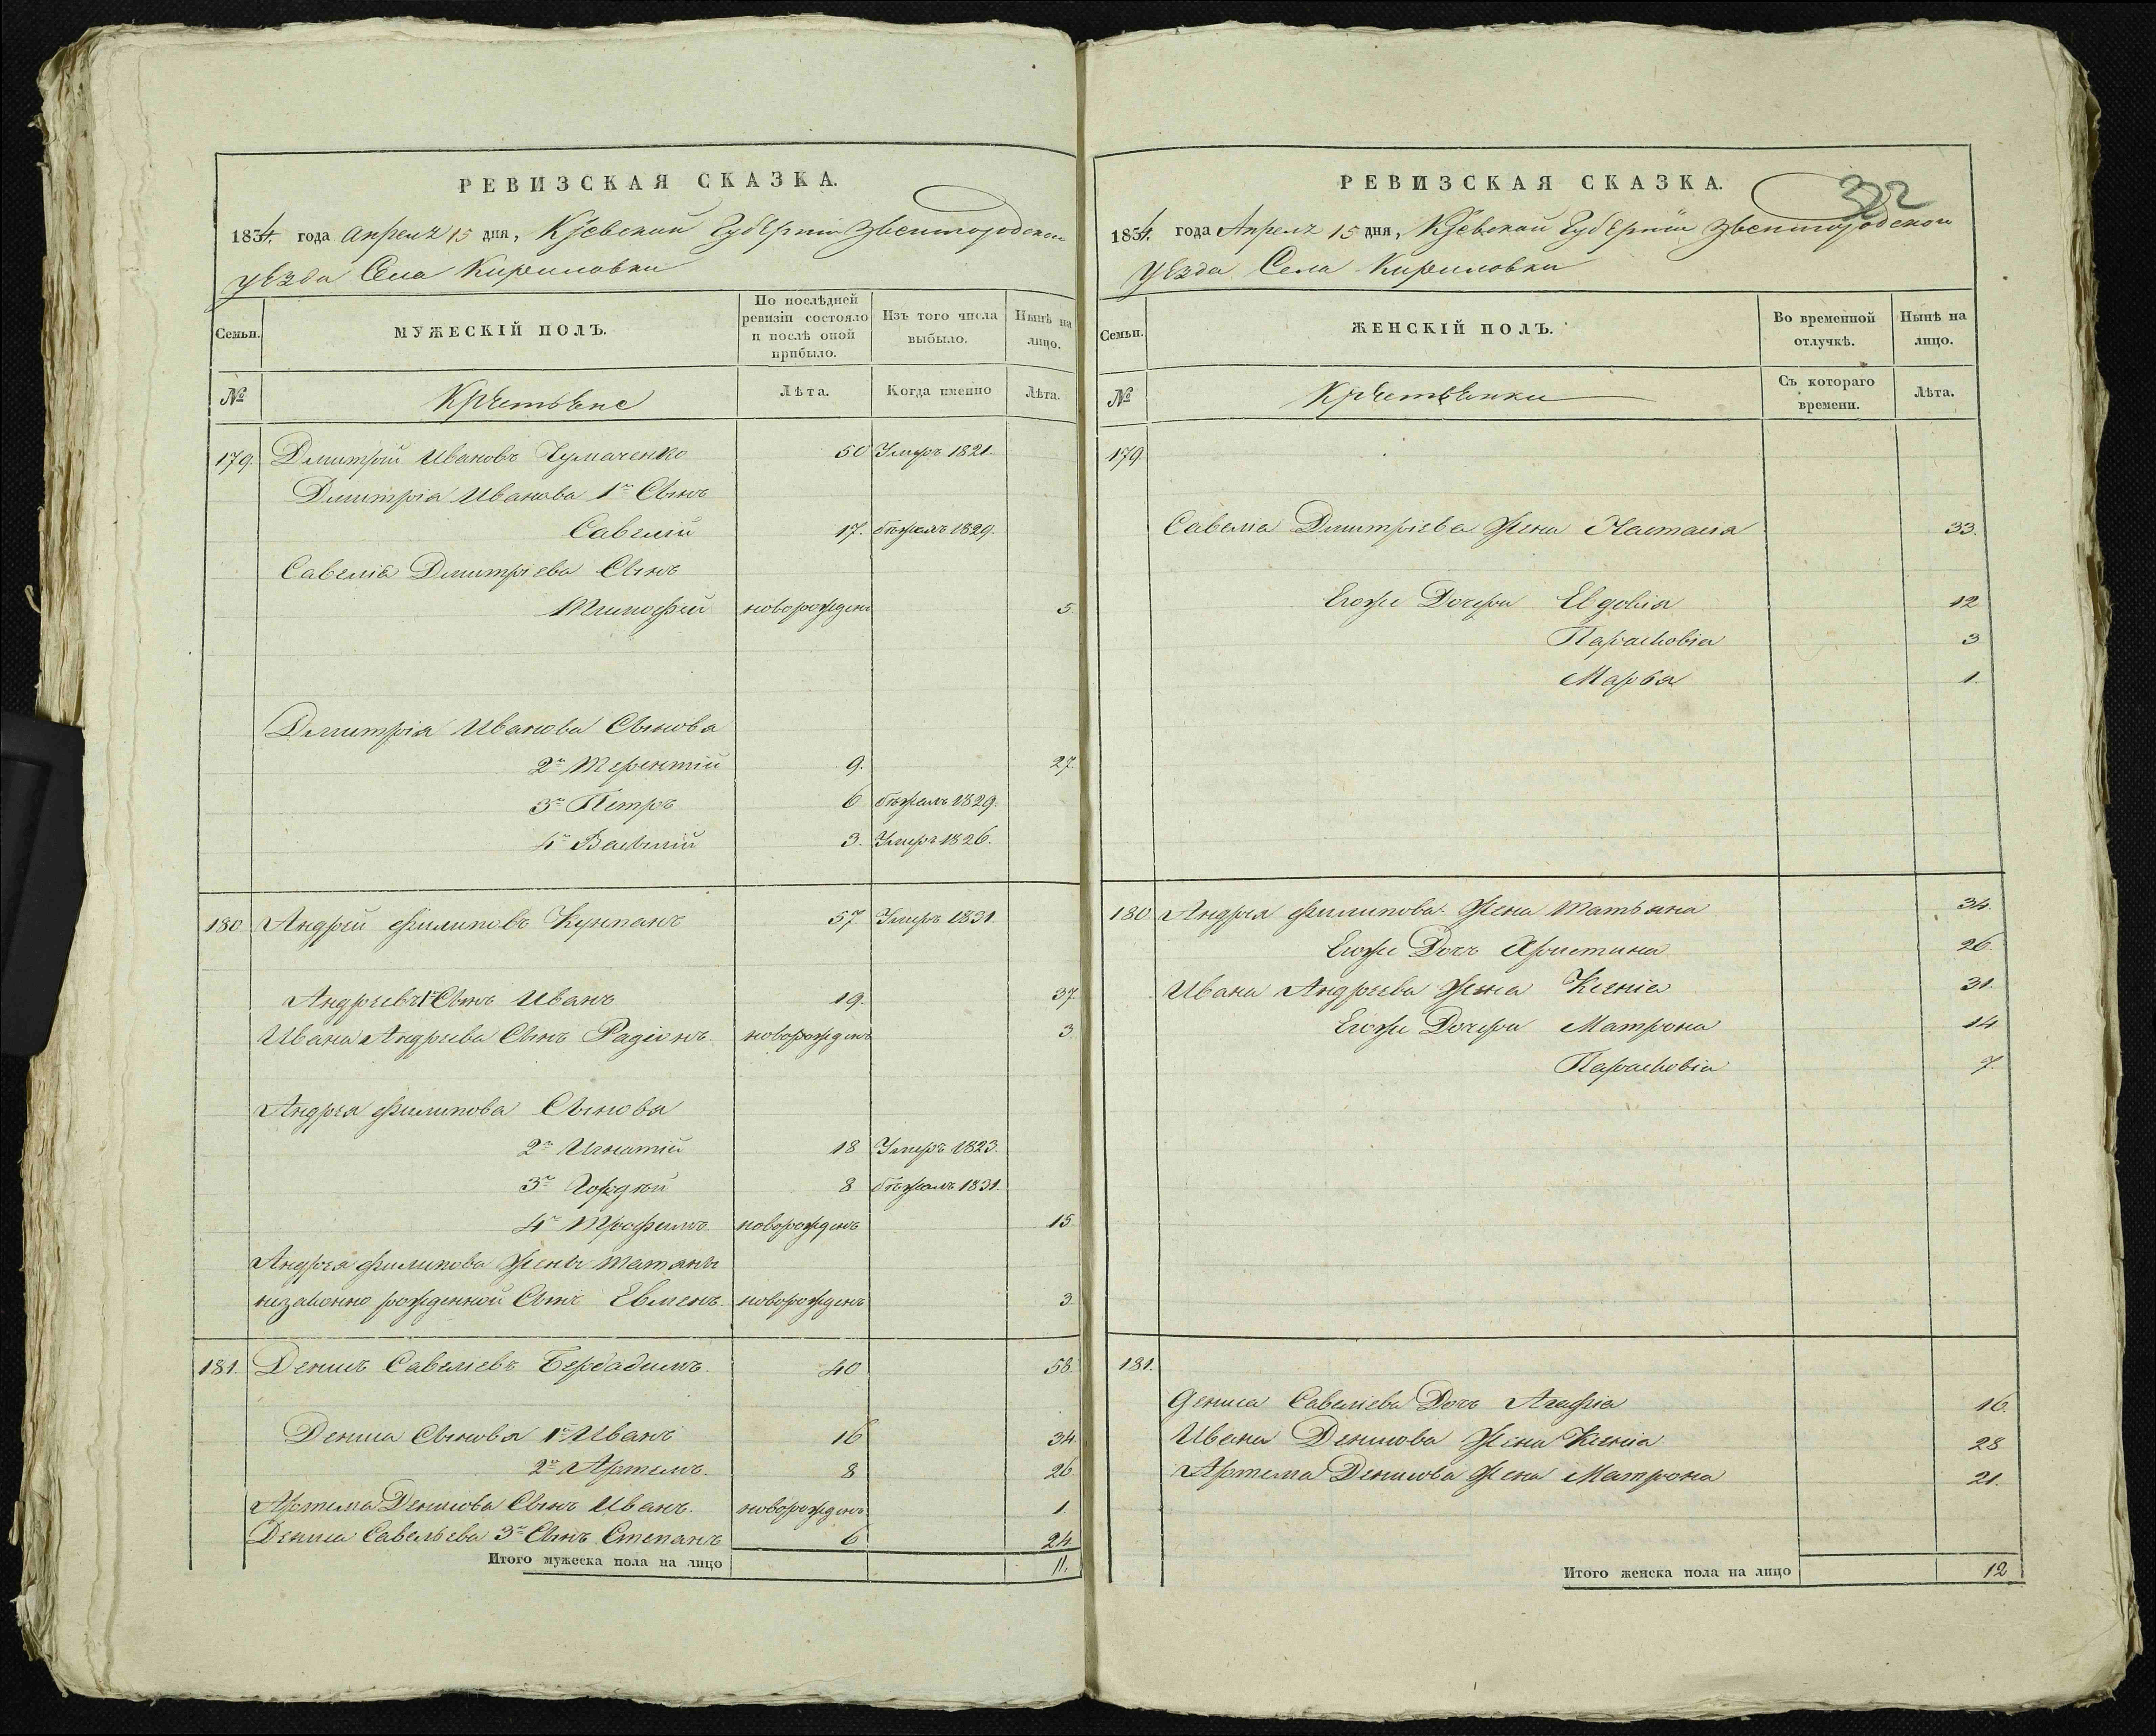 РЕВИЗСКАЯ СКАЗКА.
1834. года Апреля 15 дня, Кіевской Губерніи Звенигородскаго
уѣзда Села Кириловки
Семьи.
МУЖЕСКІЙ ПОЛЪ.
По послѣдней ревизіи состояло и послѣ оной прибыло.
Изъ того числа выбыло.
Нынѣ на лицо.
№
Крестьяне
Лѣта.
Когда именно
Лѣта.
179. Дмитрій Ивановъ Чумаченко 50 Умеръ 1821.
Дмитрія Иванова 1й Сынъ
Савелій 17. бѣжалъ 1829.
Савелія Дмитріева Сынъ
Тимофей новорожденъ 5
Дмитрія Иванова Сыновья
2й Терентій 9. 27.
3й Петръ 6 бѣжалъ 1829.
4й Василій 3. Умеръ 1826.
180 Андрей Филиповъ 57. Умеръ 1831
Андреевъ 1й Сынъ Иванъ 19. 37.
Ивана Андреева Сынъ Радіонъ новорожденъ 3.
Андрея Филипова Сыновья
2й Игнатій 18 Умеръ 1823.
3й Гордѣй 8 бѣжалъ 1831.
4й Трофимъ новорожденъ 15
Андрея Филипова Жены Татяны
незаконно рожденной Сынъ Евменъ новорожденъ 3
181. Денисъ Савеліевъ 40 58.
Дениса Сыновья 1й Иванъ 16 34
2й Артемъ. 8 26
Артема Денисова Сынъ Иванъ. новорожденъ 1.
Дениса Савельева 3й Сынъ Степанъ 6 24
Итого мужеска пола на лицо 11.
РЕВИЗСКАЯ СКАЗКА.
322
1834. года Апреля 15 дня, Кіевской Губерніи Звенигородскаго
уѣзда Села Кириловки
Семьи.
ЖЕНСКІЙ ПОЛЪ.
Во временной отлучкѣ.
Нынѣ на лицо.
№
Крестьянки
Съ котораго времени.
Лѣта.
179
Савелія Дмитріева Жена Настасія 33.
Егоже Дочери Евдокія 12
Парасковія 3
Марѳа 1.
180. Андрея Филипова Жена Татьяна 34.
Егоже Дочь Христина 26.
Ивана Андреева Жена Ксенія 31.
Егоже Дочери Матрона 14
Парасковія 7.
181.
Дениса Савеліева Дочь Агафія 16.
Ивана Денисова Жена Ксенія 28
Артема Денисова Жена Матрона 21.
Итого женска пола на лицо 12